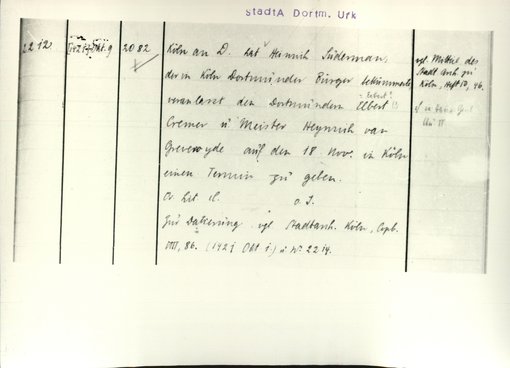 StadtA Dortm. Urk
2212.
Okt. 9
2082
Köln an D. hat Heinrich Südermans,
der in Köln Dortmunder Bürger bekümmerte
veranlasst den Dortmundern Elbert (!)
Cremer u Meister Heynrich van
auf den 18 Nov. in Köln
einen Termin zu geben.
Or Lit cl. o. J.
Zur Datierung vgl. Stadtarch. Köln, Copb.
VIII, 86. (1421 Okt 1.) u Nr. 2214.
vgl. Mitteil des
Stadt Arch zu
Köln, Heft 50, 46.